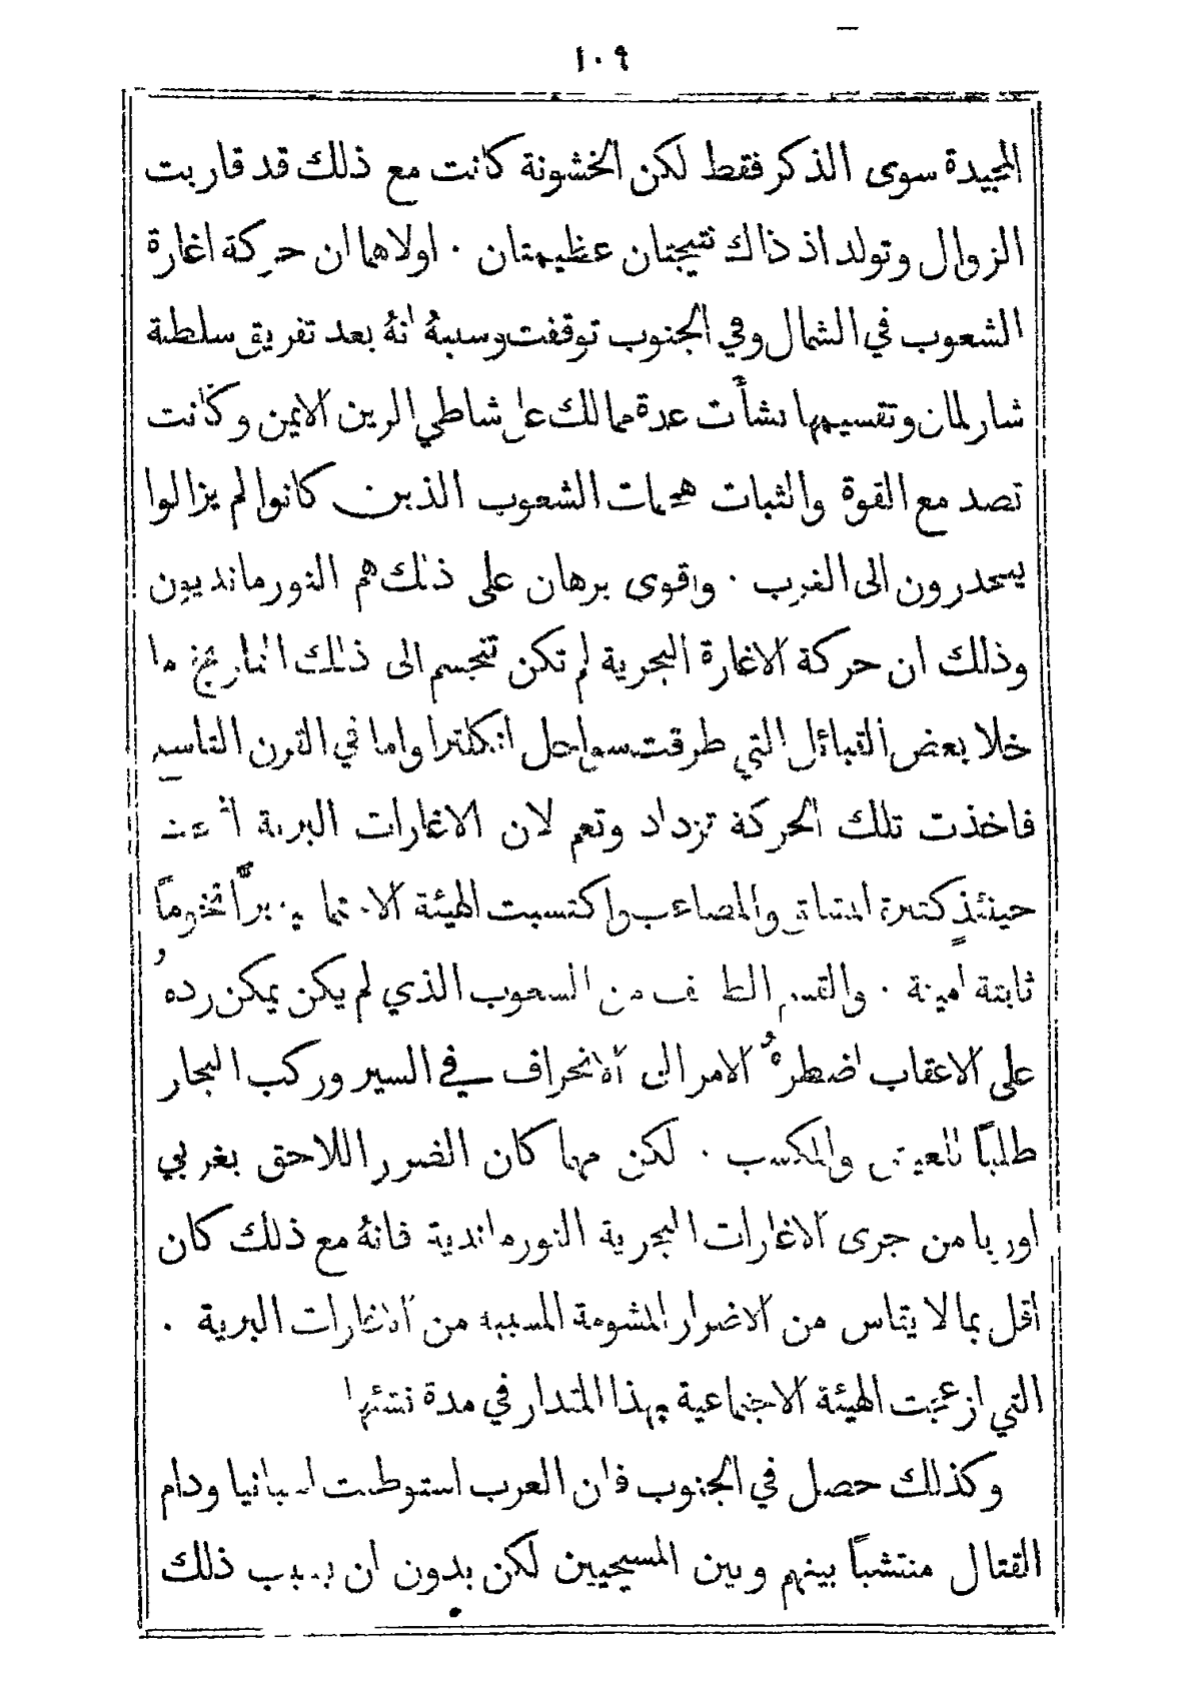 ١٠٩
المجيدة سوى الذكر فقط لكن الخشونة كانت مع ذلك قد قاربت
الزوال وتولد اذ ذاك نتيجتان عظيمتان . اولاهما ان حركة اغارة
الشعوب في الشمال وفي الجنوب توقفت وسببهُ انهُ بعد تفريق سلطة
شارلمان وتقسيمها نشأت عدة ممالك على شاطي الرين الايمن وكانت
تصد مع القوة والثبات هجمات الشعوب الذين كانوا لم يزالوا
ينحدرون الى الغرب . واقوى برهان على ذلك هم النورمانديون
وذلك ان حركة الاغارة البحرية لم تكن تتجسم الى ذلك التاريخ ما
خلا بعض القبائل التي طرقت سواحل انكلترا واما في القرن التاسع
فاخذت تلك الحركة تزداد وتعم لان الاغارات البرية
حينئذٍ كثيرة المشاق والمصاعب واكتسبت الهيئة الاجتماعية براً تخوماً
ثابتة امينة . والقسم من الشعوب الذي لم يكن يمكن ردهُ
على الاعقاب اضطرهُ الامر الى الانحراف في السير وركب البحار
طلباً للعيش والمكسب . لكن مهما كان الضرر اللاحق بغربي
اوربا من جرى الاغارات البحرية النورماندية فانهُ مع ذلك كان
اقل بما لا يقاس من الاضرار المشومة المسببة من الاغارات البرية .
التي ازعجت الهيئة الاجتماعية بهذا المقدار في مدة نشئها
وكذلك حصل في الجنوب فان العرب استوطنت اسبانيا ودام
القتال منتشباً بينهم وبين المسيحيين لكن بدون ان يسبب ذلك